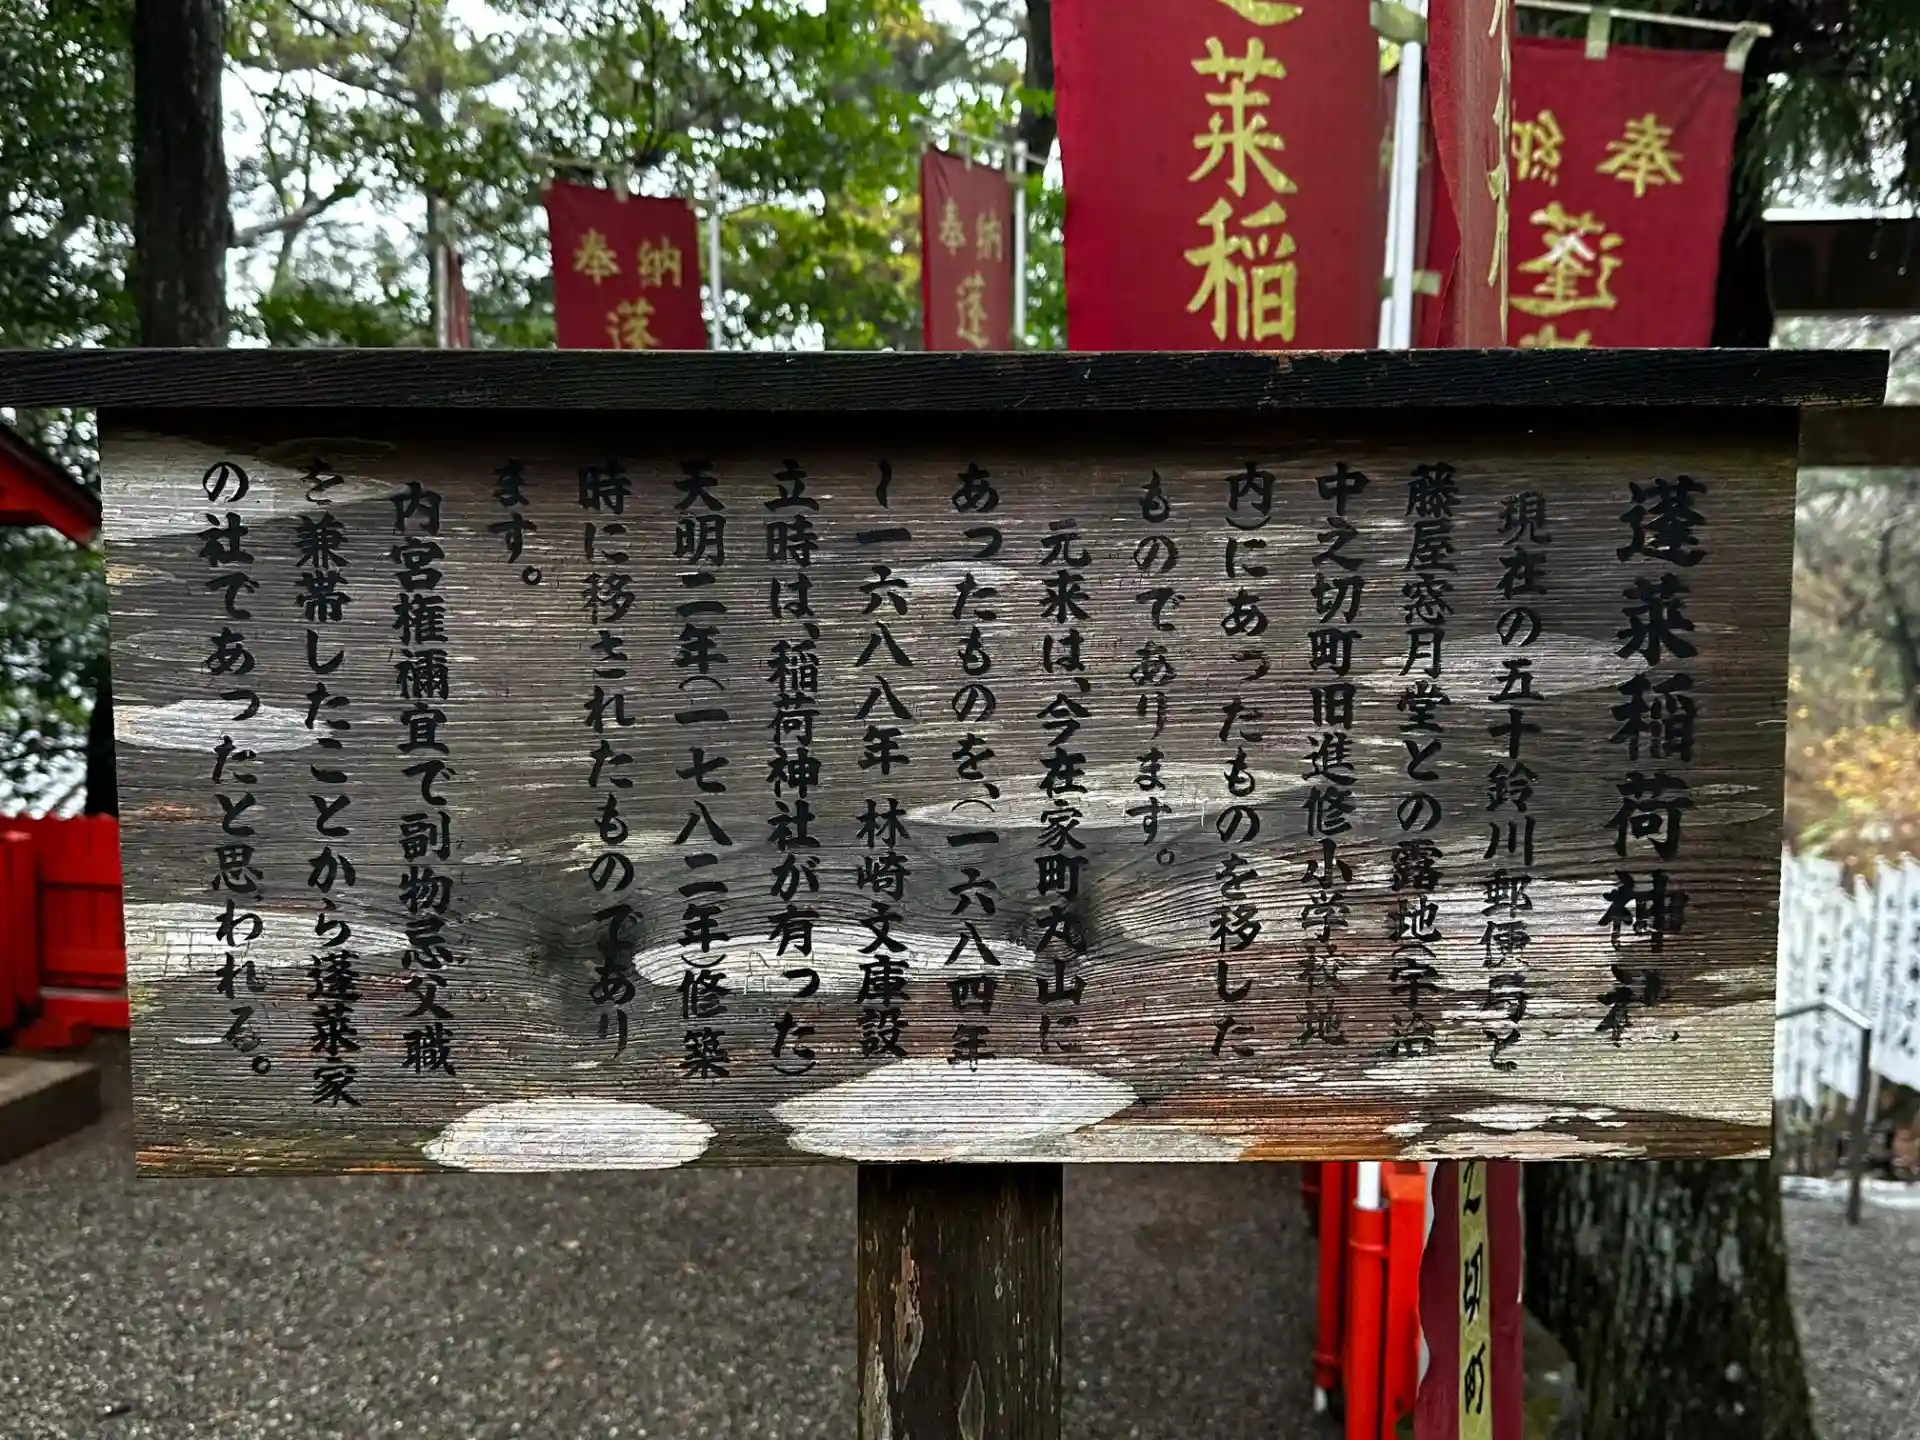 蓬莱稲荷神社
現在の五十鈴川郵便局と
藤屋窓月堂との露地(宇治
中之切町旧進修小学校地
内)にあったものを移した
ものであります。
元来は、今在家町丸山に
あったものを、(一六八四年
~一六八八年 林崎文庫設
立時は、稲荷神社が有った)
天明二年(一七八二年)修築
時に移されたものであり
ます。
内宮権禰宜で副物忌父職
を兼帯したことから蓬莱家
の社であったと思われる。
莱稲
奉納
蓬
奉納
蓬
奉納
蓬
切町